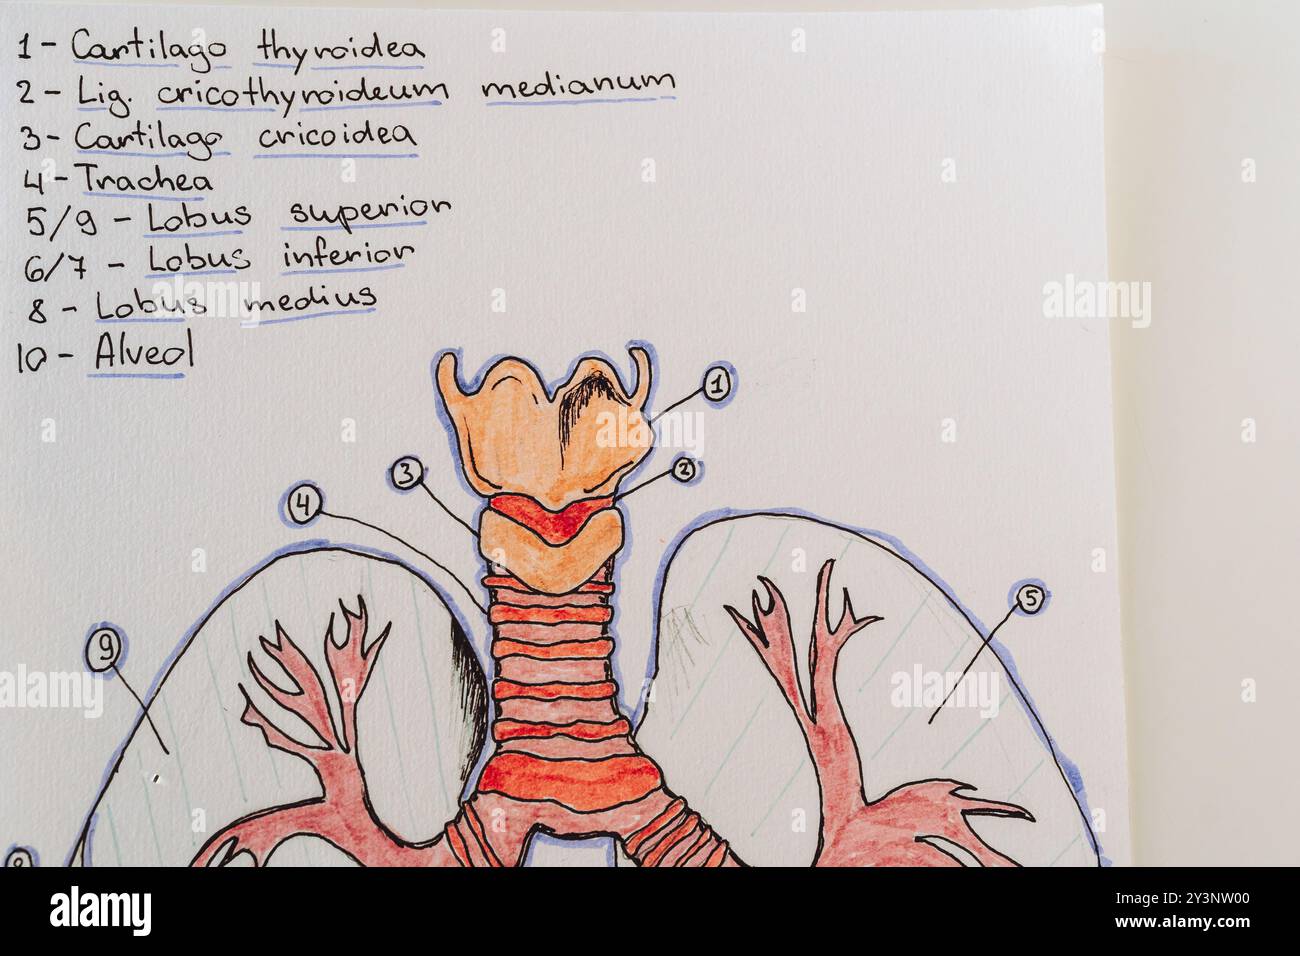 1 - Cartilago thyroidea
2 - Lig. cricothyroideum medianum
3 - Cartilago cricoidea
4 - Trachea
5/9 - Lobus superior
6/7 - Lobus inferior
8 - Lobus medius
10 - Alveol
1
2
3
4
5
9
8
alamy
Image ID: 2Y3NW00
www.alamy.com